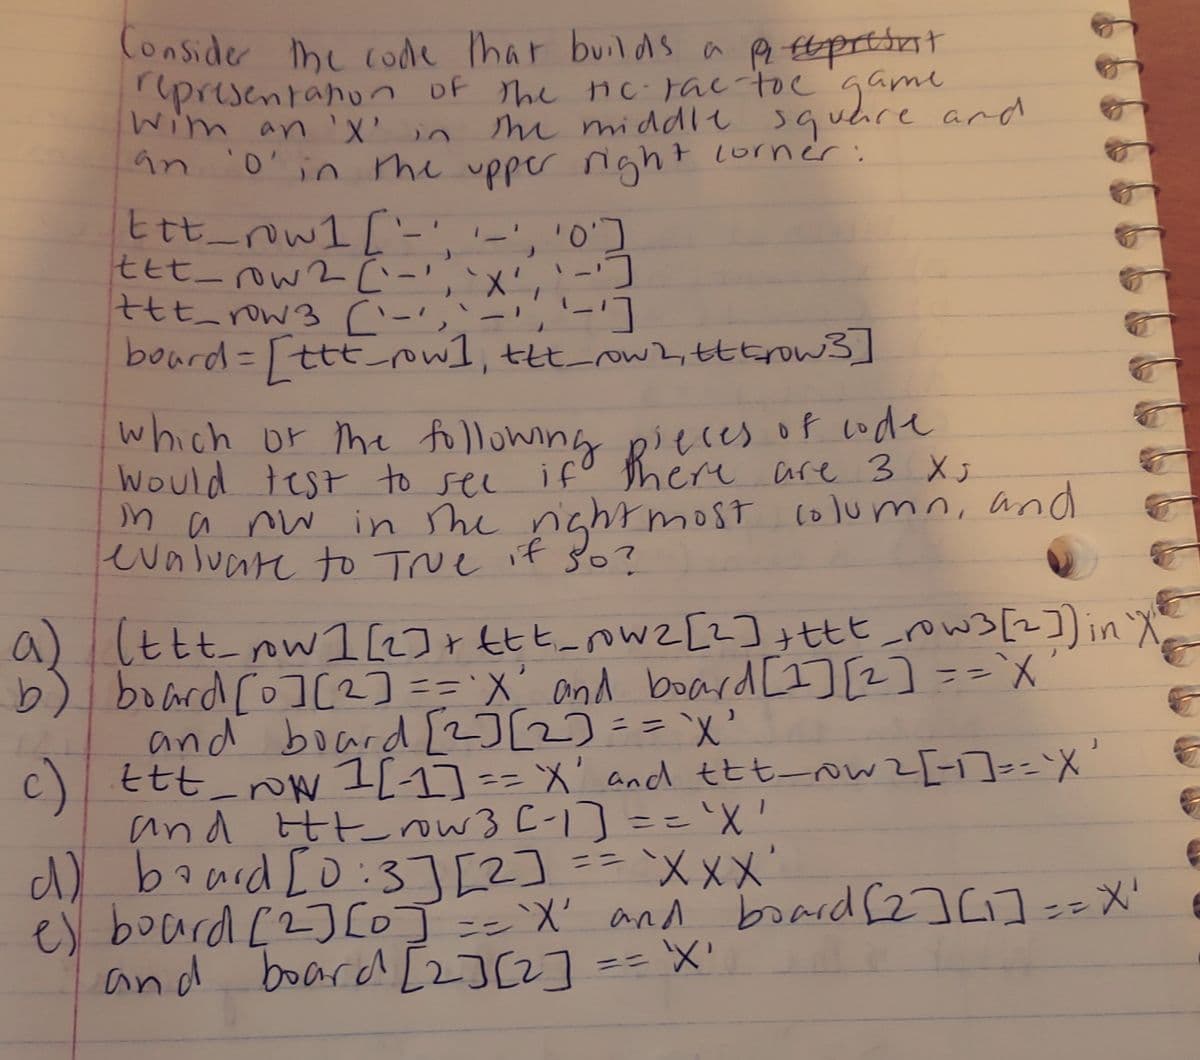 Consider the code that builds a
representation of the tic-tac-toe game
with an 'X' in the middle square and
an 'O' in the upper right corner:
ttt_row1 ['-', '-', 'O']
ttt_row2 ['-', 'X', '-']
ttt_row3 ['-', '-', '-']
board = [ttt_row1, ttt_row2, tttrow3]
which of the following pieces of code
would test to see if there are 3 Xs
in a row in the rightmost column, and
evaluate to True if so?
a) (ttt_row1[2] + ttt_row2[2] + ttt_row3[2]) in 'X'
b) board[0][2] == 'X' and board[1][2] == 'X'
and board[2][2] == 'X'
c) ttt_row1[-1] == 'X' and ttt_row2[-1] == 'X'
and ttt_row3[-1] == 'X'
d) board[0:3][2] == 'XXX'
e) board[2][0] == 'X' and board[2][1] == X'
and board[2][2] == 'X'